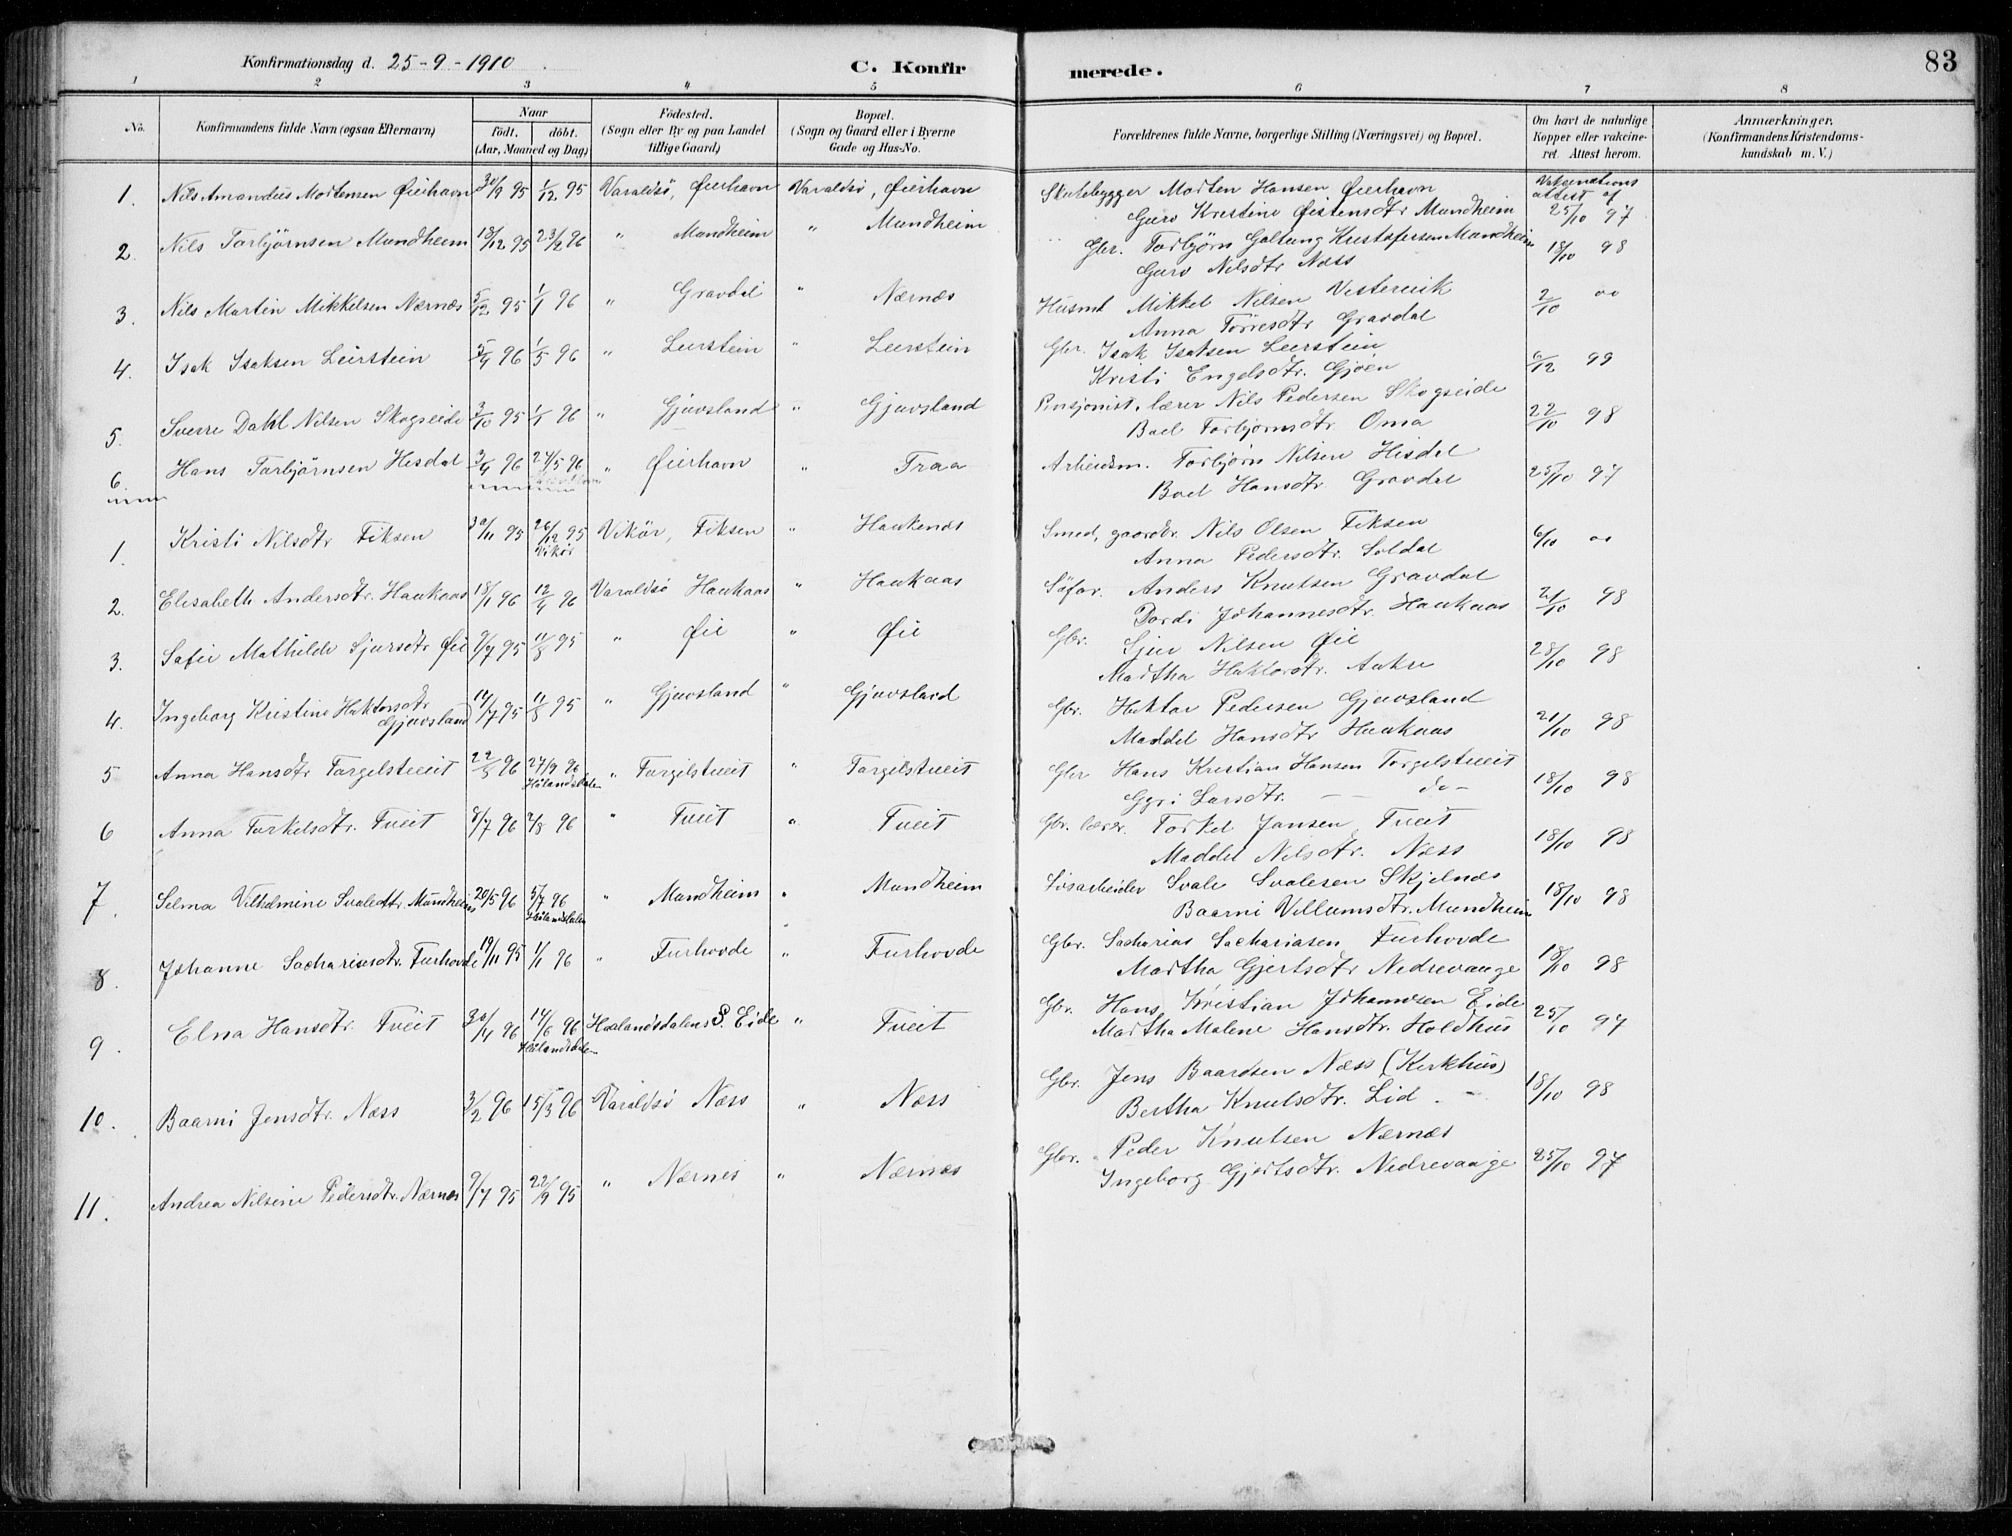 Konfirmationsdag d. 25-9-1910
C. Konfirmerede.
83
1 2 3 4 5 6 7 8
No. Konfirmandens fulde Navn (ogsaa Efternavn) Naar født. døbt. (Aar, Maaned og Dag) Fødested. (Sogn eller By og paa Landet tillige Gaard) Bopæl. (Sogn og Gaard eller i Byerne Gade og Hus-No. Forældrenes fulde Navne, borgerlige Stilling (Næringsvei) og Bopæl. Om havt de naturlige Kopper eller vakcineret. Attest herom. Anmærkninger. (Konfirmandens Kristendomskundskab m. V.)
1. Nils Amandus Mortensen Øierhavn 30/9 95 1/12 95 Varaldsö, Øierhavn Varaldsö, Øierhavn Skutebygger Morten Hansen Øierhavn Vakcinations attest af
Guro Kristine Østensdtr Mundheim 25/10 97
2. Nils Torbjørnsen Mundheim 18/12 95 23/2 96 " Mundheim " Mundheim Gbr. Torbjørn Galtung Kristofersen Mundheim 18/10 98
Guro Nilsdtr Næss
3. Nils Martin Mikkelsen Nærnes 5/12 95 1/1 96 " Gravdal " Nærnes Husmd Mikkel Nilsen Vestervik 2/10 00
Anna Tørresdtr Gravdal
4. Isak Isaksen Leirstein 5/4 96 1/5 96 " Leirstein " Leirstein Gbr. Isak Isaksen Leirstein 6/12 99
Kristi Engelsdtr. Gjøen
5. Sverre Dahl Nilsen Skogseide 3/10 95 1/1 96 " Gjuvsland " Gjuvsland Pensjonist. lærer Nils Pedersen Skogseide 22/10 98
Boel Torbjørnsdtr. Oma
6. Hans Torbjørnsen Hisdal 3/4 96 24/5 96 " Øierhavn " Traa Arbeidsm. Torbjørn Nilsen Hisdal 25/10 97
Boel Hansdtr. Gravdal
1. Kristi Nilsdtr Fiksen 30/11 95 26/12 95 Vikör Vikör, Fiksen " Haukenes Smed, gaardbr. Nils Olsen Fiksen 6/10 00
Anna Pedersdtr. Soldal
2. Elisabeth Andersdtr. Haukaas 18/1 96 12/4 96 Varaldsö Haukaas " Haukaas Söfar. Anders Knutsen Gravdal 21/10 98
Dordi Johannesdtr. Haukaas
3. Sofie Mathilde Sjursdtr Øie 9/7 95 11/8 95 " Øie " Øie Gbr. Sjur Nilsen Øie 28/10 98
Martha Haktorsdtr. Aakre
4. Ingeborg Kristine Haktorsdtr Gjuvsland 14/7 95 11/8 95 " Gjuvsland " Gjuvsland Gbr. Haktor Pedersen Gjuvsland 21/10 98
Maddel Hansdtr Haukaas
5 Anna Hansdtr Torgelstveit 22/5 96 27/9 96 Hålandsdalen " Torgilstveit " Torgelstveit Gbr Hans Kristian Hansen Torgelstveit 18/10 98
Gyri Larsdtr. — do -
6 Anna Torkelsdtr. Tveit 8/7 96 2/8 96 " Tveit " Tveit Gbr. lærer. Torkel Jansen Tveit 18/10 98
Maddel Nilsdtr. Næss
7. Selma Vilhelmine Svalesdtr. Mundheim 20/5 96 5/7 96 Hålandsdalen " Mundheim " Mundheim Lösarbeider Svale Svalesen Skjelnes 18/10 98
Baarni Villumsdtr. Mundheim
8. Johanne Sachariasdtr. Furhovde 19/11 95 1/1 96 " Furhovde " Furhovde Gbr. Sacharias Sachariasen Furhovde 18/10 98
Martha Gjertsdtr Nedrevaage
9. Elna Hansdtr. Tveit 30/4 96 14/6 96 Hålandsdalen Haalandsdalens S. Eide " Tveit Gbr. Hans Kristian Johannesen Eide 25/10 97
Martha Malene Hansdtr. Holdhus
10. Baarni Jensdtr. Næss 3/2 96 15/3 96 Varaldsö Næss " Næss Gbr. Jens Baardsen Næss (Kirkhus) 18/10 98
Bertha Knutsdtr. Lid. -
11. Andrea Nilsine Pedersdtr. Nærnes 9/7 95 22/9 95 " Nærnes " Nærnes Gbr. Peder Knutsen Nærnes 25/10 97
Ingeborg Gjertsdtr. Nedrevaage